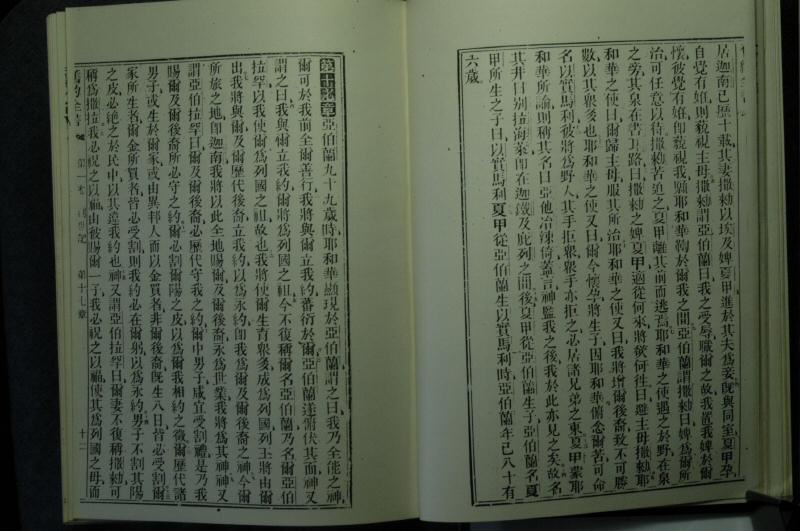 居迦南已歷十載其妻撒勑以埃及婢夏甲進於其夫爲妾旣與同室夏甲孕
自覺有娠則藐視主母撒勑謂亞伯蘭曰我之受辱職爾之故我置我婢於爾
懷彼覺有娠卽藐視我願耶和華鞫於爾我之間亞伯蘭謂撒勑曰婢爲爾所
治可任意以待撒勑苦迫之夏甲離其前而逃焉耶和華之使遇之於野在泉
之旁其泉在書耳路曰撒勑之婢夏甲適從何來將欲何往曰避主母撒勑耶
和華之使曰爾歸主母服其所治耶和華之使又曰我將增爾後裔致不可勝
數以其衆多也耶和華之使又曰爾今懷孕將生子因耶和華俯念爾苦可命
名以實馬利彼將爲野人其手拒衆衆手亦拒之必居諸兄弟之東夏甲蒙耶
和華所諭則稱其名曰亞他冶湅倚蓋言神監我之後我於此亦見之矣故名
其井曰別拉海萊卽在迦鐵及庇列之間後夏甲從亞伯蘭生子亞伯蘭名夏
甲所生之子曰以實馬利夏甲從亞伯蘭生以實馬利時亞伯蘭年已八十有
六歲
第十七章 亞伯蘭九十九歲時耶和華顯現於亞伯蘭謂之曰我乃全能之神
爾可於我前全爾善行我將與爾立我約蕃衍於爾亞伯蘭遂俯伏其面神又
謂之曰我與爾立我約爾將爲列國之祖今不復稱爾名亞伯蘭乃名爾亞伯
拉罕以我使爾爲列國之祖故也我將使爾生育衆多成爲列國列王將由爾
出我將與爾及爾歷代後裔立我約以爲永約卽我爲爾及爾後裔之神今爾
所旅之地卽迦南我將以此全地賜爾及爾後裔永爲世業我將爲其神神又
謂亞伯拉罕曰爾及爾後裔必歷代守我之約爾中男子咸宜受割禮是乃我
賜爾及爾後裔所必守之約爾必割爾陽之皮以爲爾我相約之徵爾歷代諸
男子或生於爾家或由異邦人而以金買者非爾後裔旣生八日皆必受割爾
家所生者爾金所買者皆必受割則我約必在爾躬以爲永約男子不割其陽
之皮必絕之於民中以其違我約也神又謂亞伯拉罕曰爾妻不復稱撒勑可
稱爲撒拉我必祝之以福由彼賜爾一子我必祝之以福使其爲列國之母而
第十七章
十二